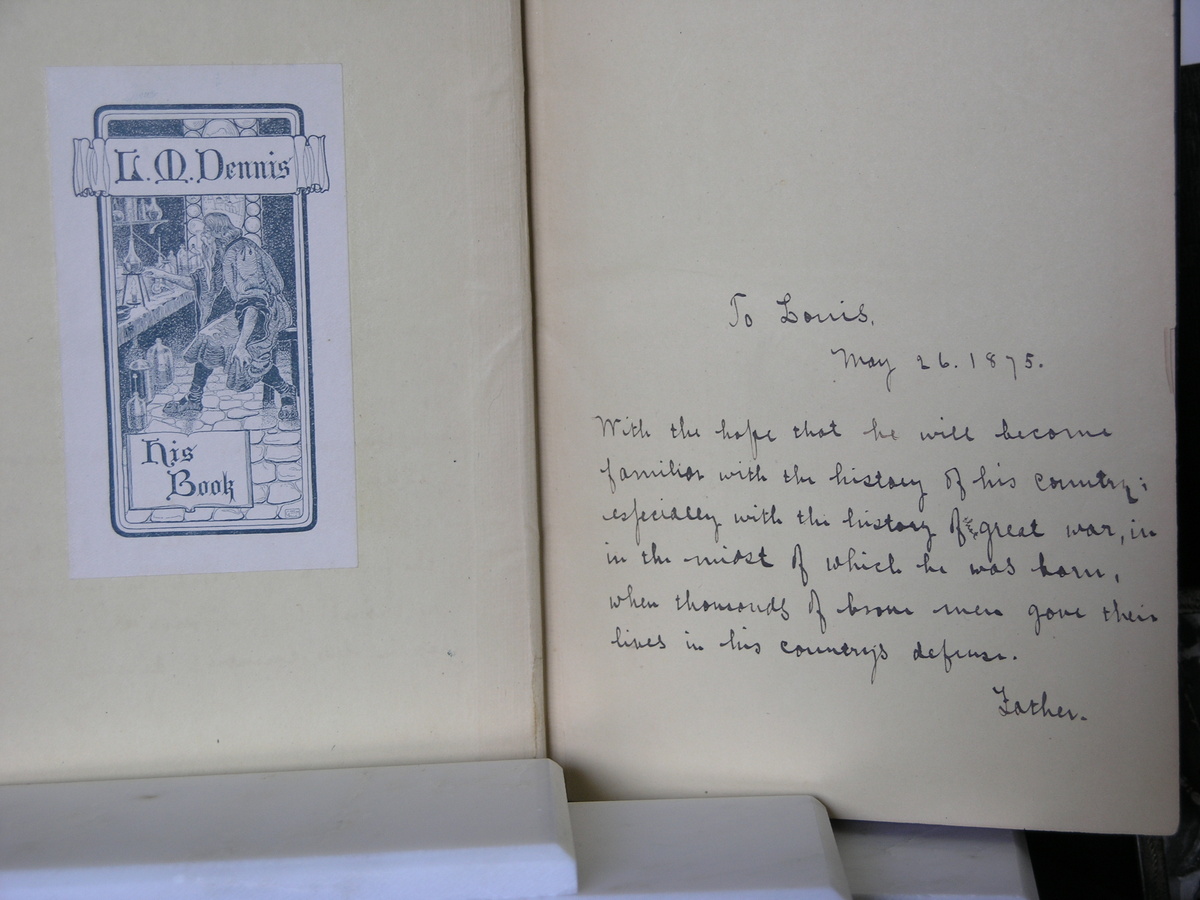 L. M. Dennis
His
Book
To Louis.
May 26. 1875.
With the hope that he will become
familiar with the history of his country;
especially with the history of the great war, in
in the midst of which he was born,
when thousands of brave men gave their
lives in his country's defense.
Father.